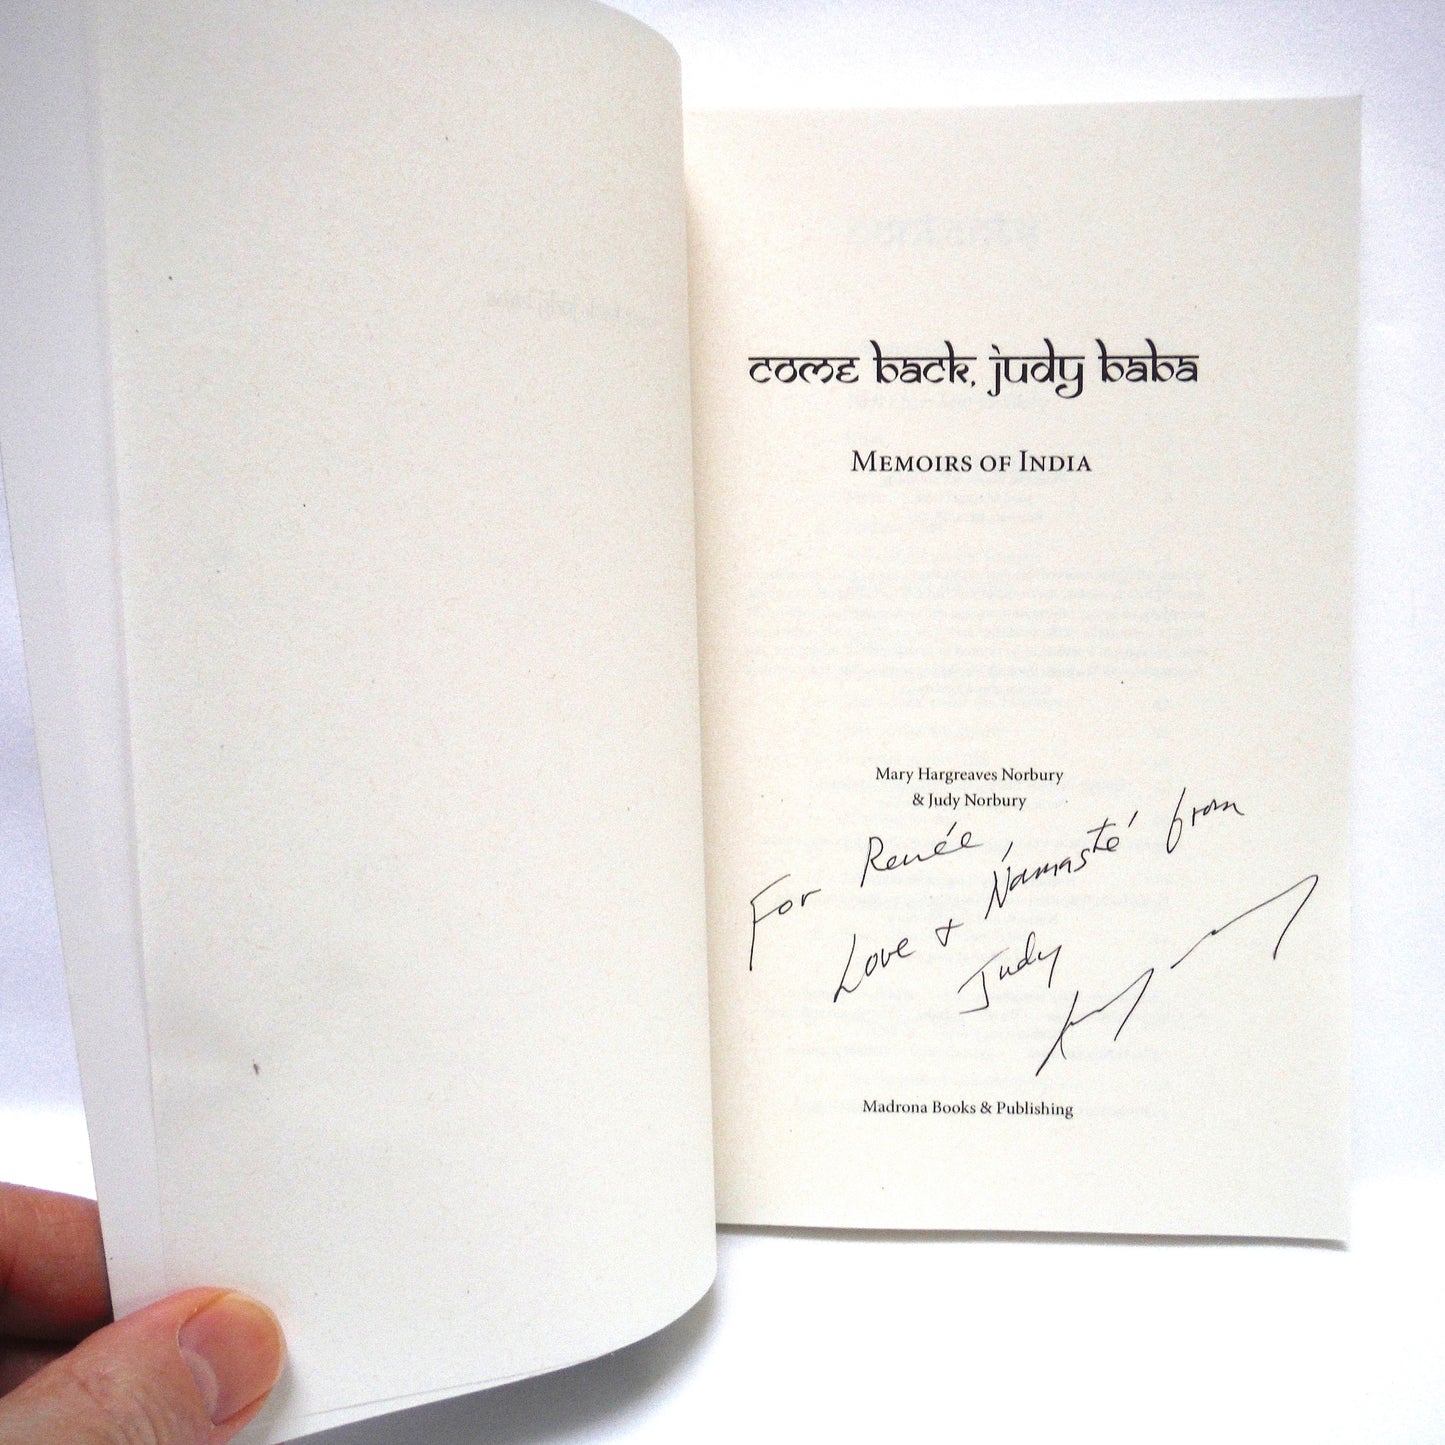 come back, judy baba
Memoirs of India
Mary Hargreaves Norbury
& Judy Norbury
For Renée,
Love + Namasté from
Judy
Madrona Books & Publishing